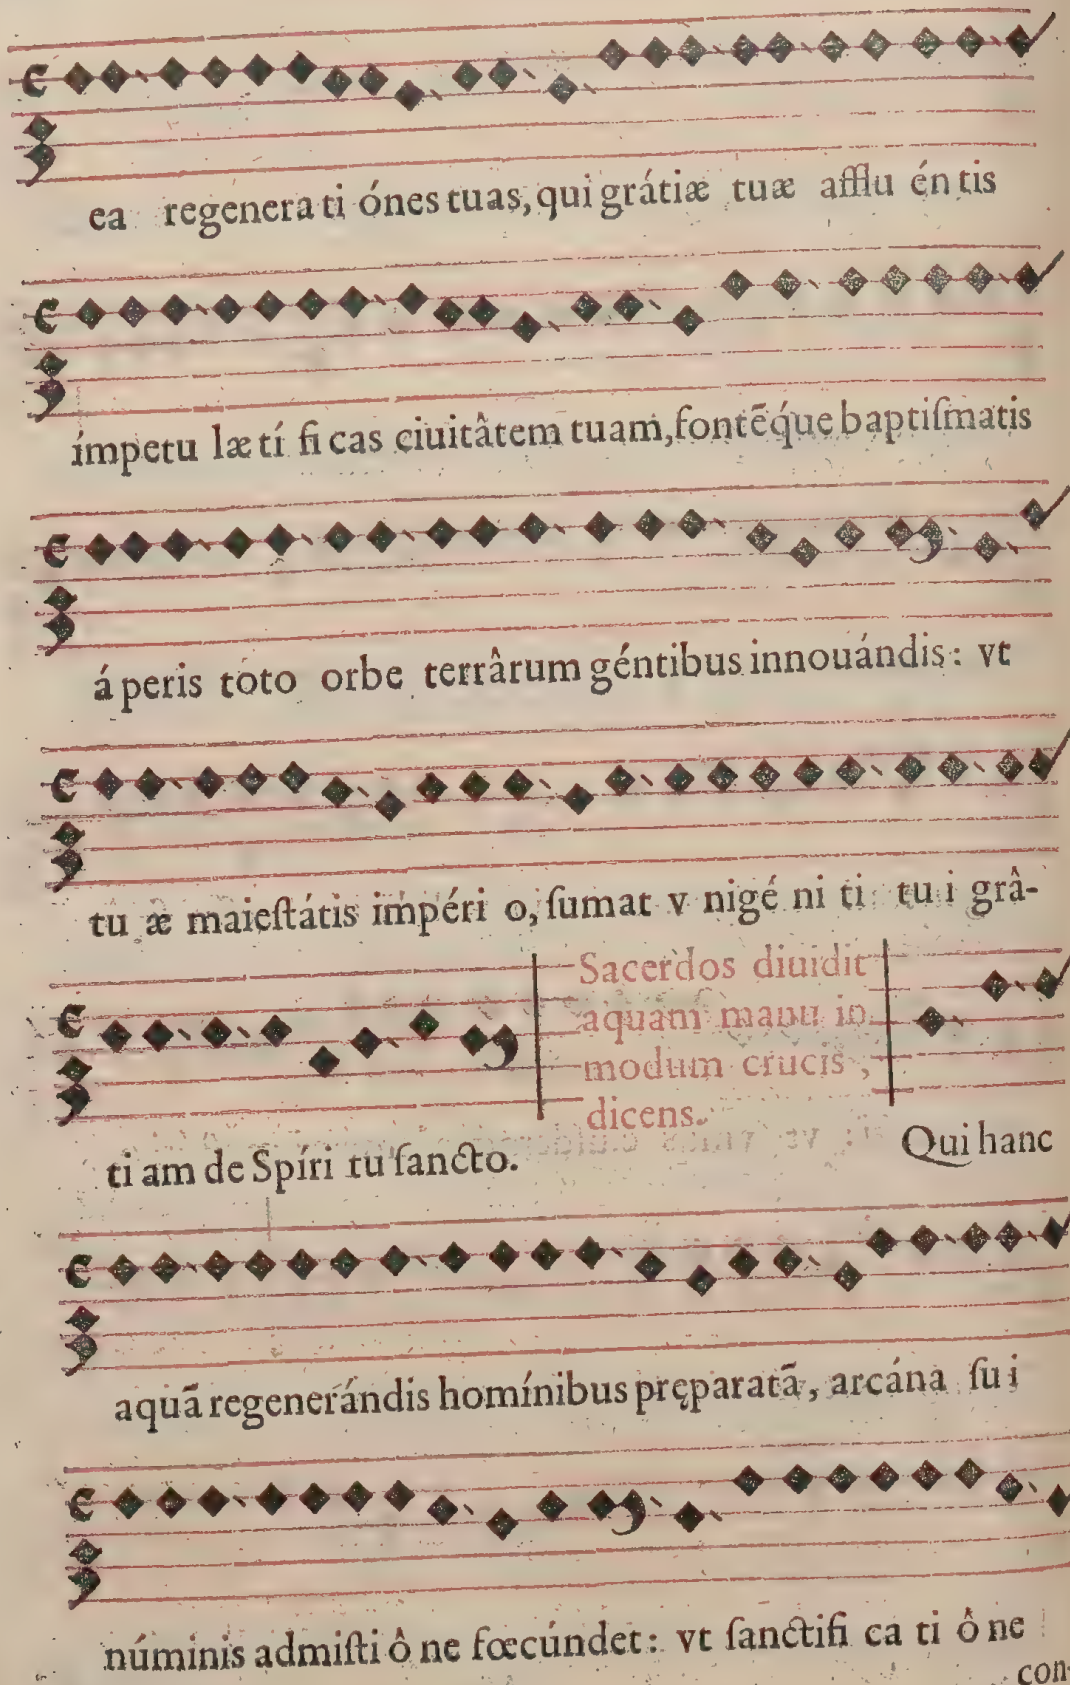 ea regenera ti ónes tuas, qui grátiæ tuæ afflu én tis
ímpetu læ tí fi cas ciuitâtem tuam, fontḗque baptiſmatis
á peris toto orbe terrârum géntibus innouándis: vt
tu æ maieſtátis impéri o, ſumat v nigé ni ti tu i grâ-
Sacerdos diuidit
aquam manu in
modum crucis,
dicens.
ti am de Spíri tu ſancto. Qui hanc
aquā regenerándis homínibus pręparatā, arcána ſu i
núminis admiſti ô ne fœcúndet: vt ſanctifi ca ti ô ne
con-